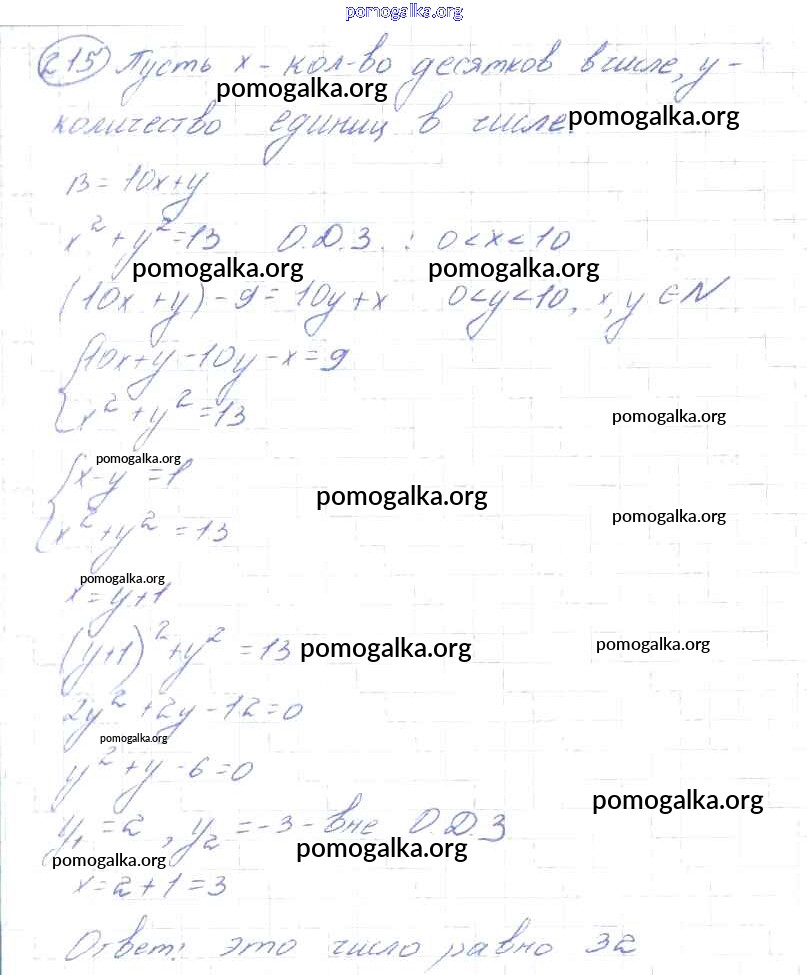 pomogalka.org
215 Пусть x - кол-во десятков в числе, y -
pomogalka.org
количество единиц в числе. pomogalka.org
13 = 10x+y
x² + y² = 13 О.Д.З. : 0 < x < 10
pomogalka.org pomogalka.org
(10x + y) - 9 = 10y + x 0 < y < 10, x, y ∈ N
{10x + y - 10y - x = 9
x² + y² = 13 pomogalka.org
pomogalka.org
{x - y = 1
pomogalka.org
x² + y² = 13 pomogalka.org
pomogalka.org
x = y + 1
(y+1)² + y² = 13 pomogalka.org pomogalka.org
2y² + 2y - 12 = 0
pomogalka.org
y² + y - 6 = 0
pomogalka.org
y₁ = 2, y₂ = -3 - вне О.Д.З
pomogalka.org pomogalka.org
x = 2 + 1 = 3
Ответ: это число равно 32